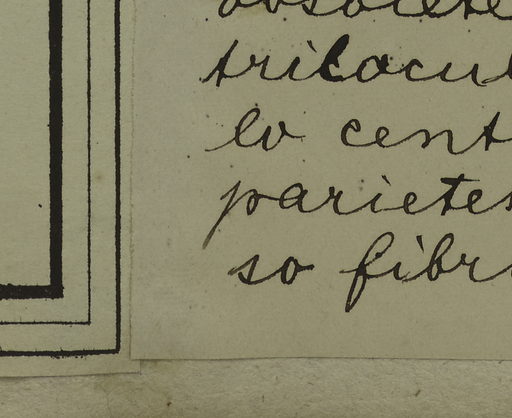 obsolete
trilocul
lo cent
parietes
so fibr